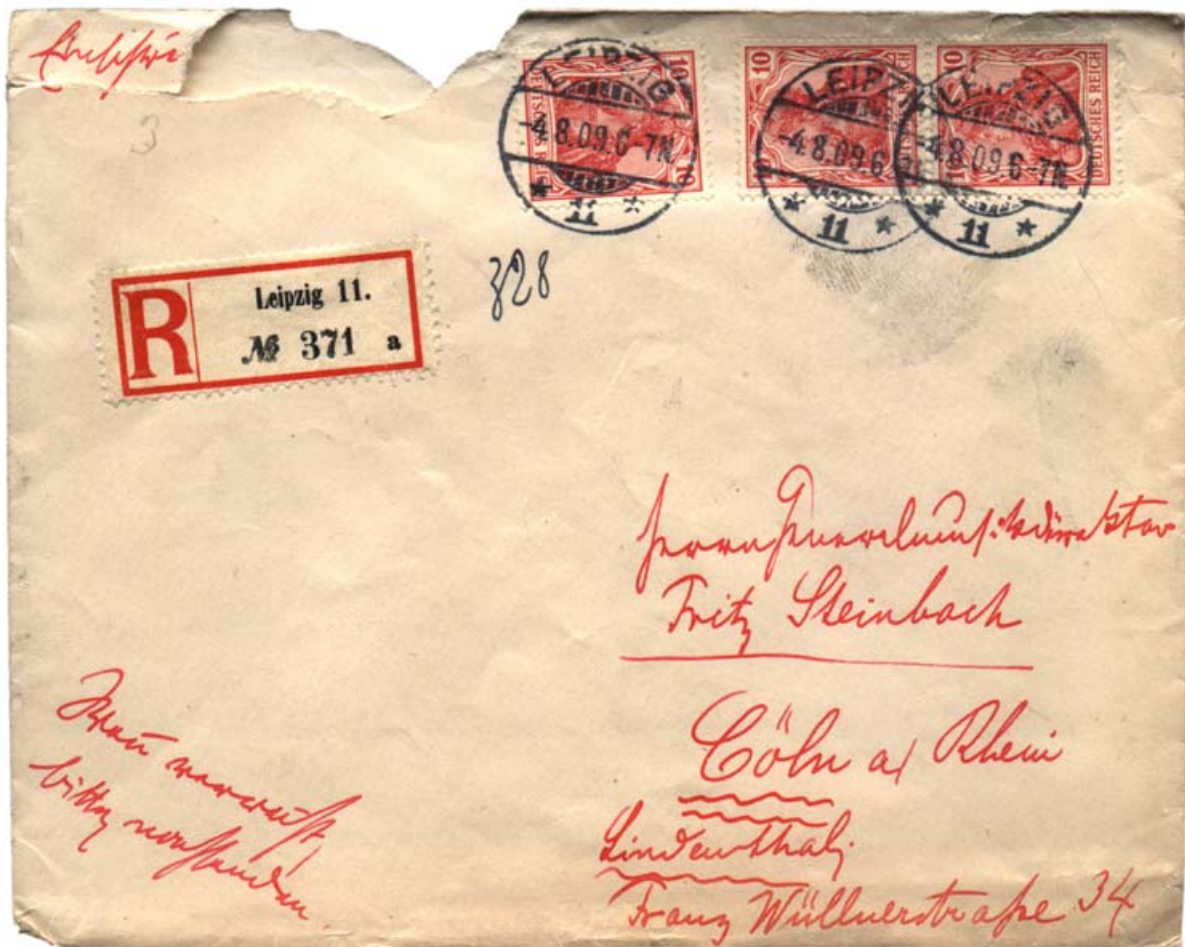 Einschrei
3
LEIPZIG
-4.8.09.6-7N.
* 11 *
10
10
LEIPZIG
-4.8.09.6
* 11 *
10
LEIPZIG
-4.8.09.6-7N.
* 11 *
10
DEUTSCHES REICH
R
Leipzig 11.
№ 371 a
328
Herrn Generalmusikdirektor
Fritz Steinbach
Cöln a/ Rhein
Lindenthal;
Franz Wüllnerstraße 34
Wenn verreist,
bitte nachsenden.